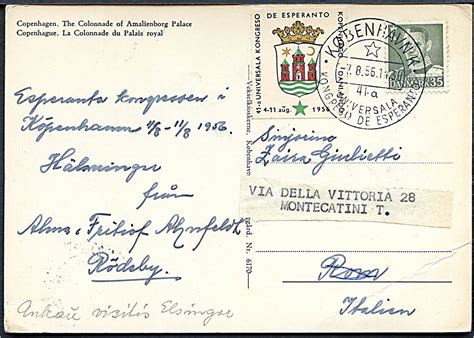 Copenhagen. The Colonnade of Amalienborg Palace
Copenhague. La Colonnade du Palais royal
41-a UNIVERSALA KONGRESO
DE ESPERANTO
KOPENHAGO DANLANDO
4-11 aŭg. 1956
KØBENHAVN K
8.56.14
41-a
UNIVERSALA
KONGRESO DE ESPERANTO
DANMARK 35
Esperanto kongressen i
Köpenhamn 4/8 - 11/8 1956.
Hälsningar
från
Alma o Fritiof Ahnfeldt,
Rödeby.
Ankaŭ vizitis Elsinore
København
Nr. 6170
Sinjorino
Zaira Giulietti
VIA DELLA VITTORIA 28
MONTECATINI T.
Roma
Italien